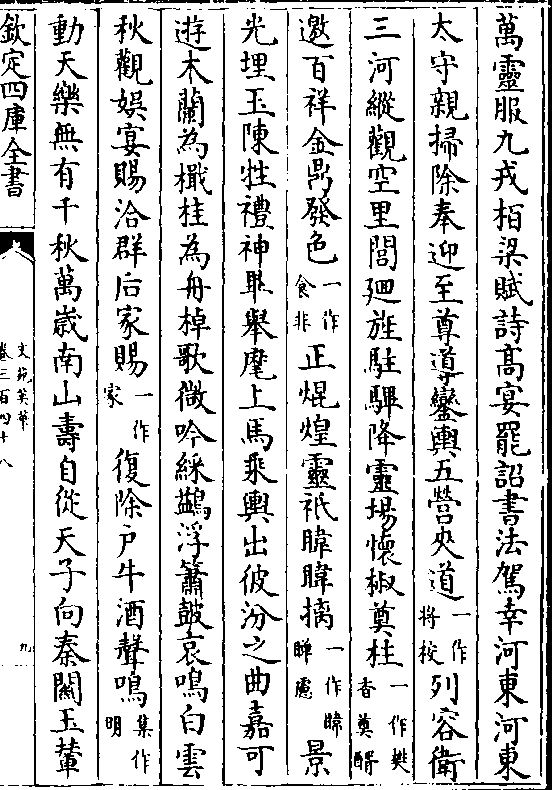 萬靈服九戎栢梁賦詩髙宴罷詔書法駕幸河東河東
太守親掃除奉迎至尊導鑾輿五營夾道一作將校列容衛
三河縱觀空里閭廻旌駐驆降靈場懐椒奠桂一作樊香奠醑
邀百祥金鼎發色一作食非正焜煌靈祇暐暐摛一作暐曄慮景
光埋玉陳牲禮神畢舉麾上馬乘輿出彼汾之曲嘉可
遊木蘭為檝桂為舟棹歌微吟綵鷁浮簫皷哀鳴白雲
秋觀娯宴賜洽群后家賜一作家復除戸牛酒聲鳴集作明
動天樂無有千秋萬嵗南山壽自從天子向秦闗玉輦
欽定四庫全書
文苑英華
卷三百四十八